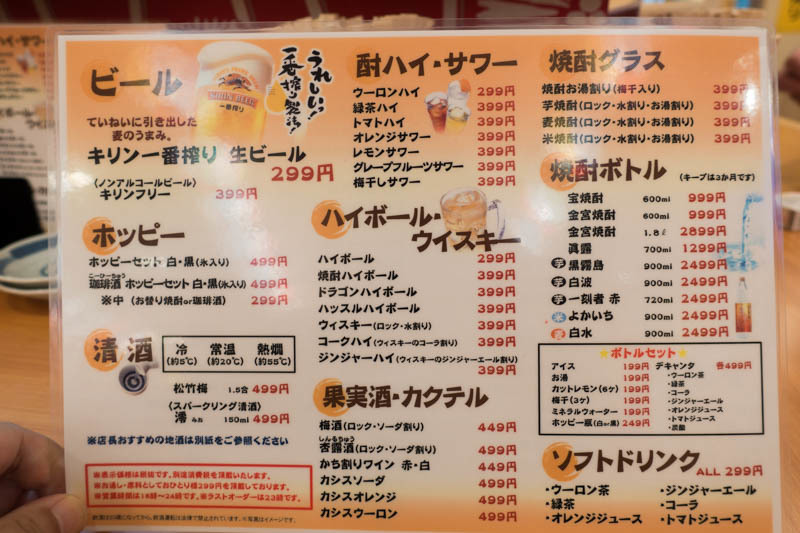 ビール
KIRIN BEER
一番搾り
うれしい!
一番搾り製法!
ていねいに引き出した
麦のうまみ。
キリン一番搾り 生ビール
299円
(ノンアルコールビール)
キリンフリー 399円
ホッピー
ホッピーセット 白・黒(氷入り) 499円
こーひーちゅう
珈琲酒 ホッピーセット 白・黒(氷入り) 499円
※中 (お替り焼酎or珈琲酒) 299円
清酒
冷 常温 熱燗
(約5℃) (約20℃) (約55℃)
松竹梅 1.5合 499円
〈スパークリング清酒〉
澪 みお 150ml 499円
※店長おすすめの地酒は別紙をご参照ください
※表示価格は税抜です。別途消費税を頂戴いたします。
※お通し・席料としておひとり様299円を頂戴しております。
※営業時間は16時〜24時です。※ラストオーダーは23時です。
飲酒は20歳になってから。飲酒運転は法律で禁止されています。※写真はイメージです。
酎ハイ・サワー
ウーロンハイ 299円
緑茶ハイ 399円
トマトハイ 399円
オレンジサワー 399円
レモンサワー 399円
グレープフルーツサワー 399円
梅干しサワー 399円
ハイボール・
ウイスキー
ハイボール 299円
焼酎ハイボール 399円
ドラゴンハイボール 399円
ハッスルハイボール 399円
ウィスキー(ロック・水割り) 399円
コークハイ(ウィスキーのコーラ割り) 399円
ジンジャーハイ(ウィスキーのジンジャーエール割り)
399円
果実酒・カクテル
梅酒(ロック・ソーダ割り) 449円
しんるちゅう
杏露酒(ロック・ソーダ割り) 449円
かち割りワイン 赤・白 449円
カシスソーダ 499円
カシスオレンジ 499円
カシスウーロン 499円
焼酎グラス
焼酎お湯割り(梅干入り) 399円
芋焼酎(ロック・水割り・お湯割り) 399円
麦焼酎(ロック・水割り・お湯割り) 399円
米焼酎(ロック・水割り・お湯割り) 399円
焼酎ボトル (キープは3か月です)
宝焼酎 600ml 999円
金宮焼酎 600ml 999円
金宮焼酎 1.8ℓ 2899円
眞露 700ml 1299円
芋 黒霧島 900ml 2499円
芋 白波 900ml 2499円
芋 一刻者 赤 720ml 2499円
米 よかいち 900ml 2499円
麦 白水 900ml 2499円
★ボトルセット★
アイス 199円
お湯 199円
カットレモン(6ケ) 199円
梅干(3ケ) 199円
ミネラルウォーター 199円
ホッピー瓶(白or黒) 249円
デキャンタ 各499円
・ウーロン茶
・緑茶
・コーラ
・ジンジャーエール
・オレンジジュース
・トマトジュース
・炭酸
ソフトドリンク ALL 299円
・ウーロン茶
・緑茶
・オレンジジュース
・ジンジャーエール
・コーラ
・トマトジュース